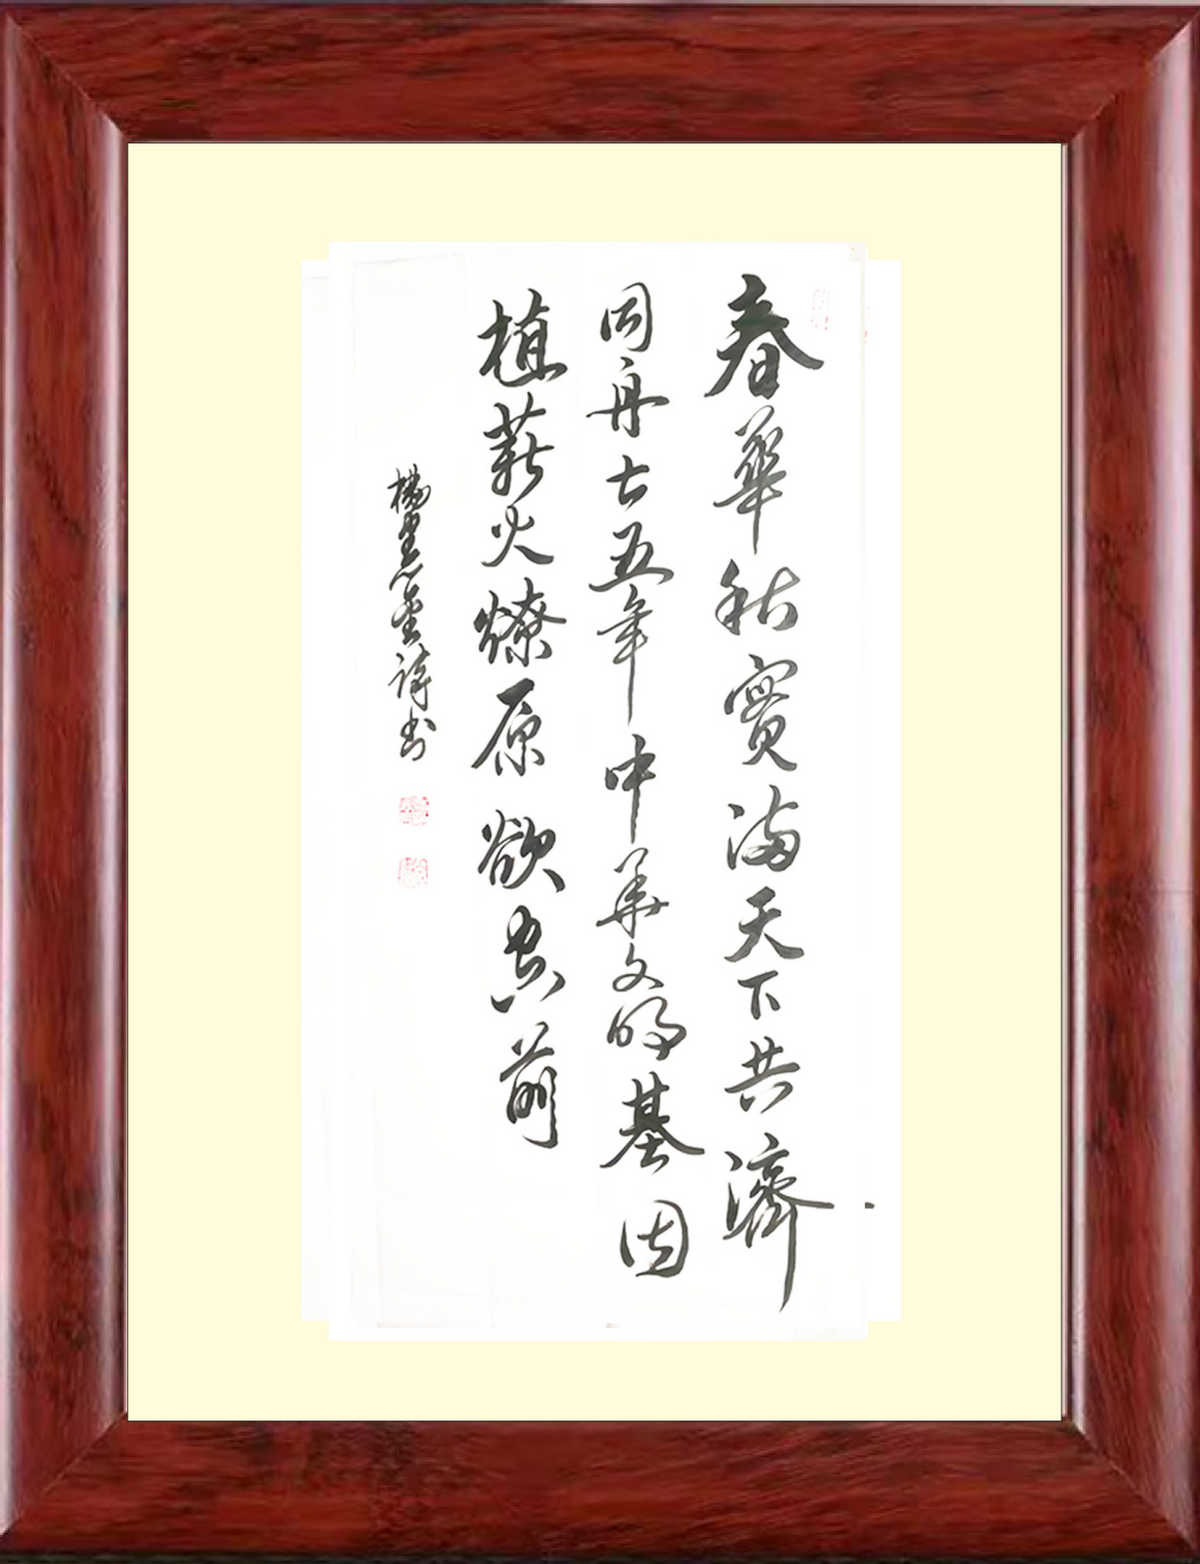 春華秋實滿天下共濟
同舟七五年中華文明基因
植薪火燎原欲空前
楊詩書